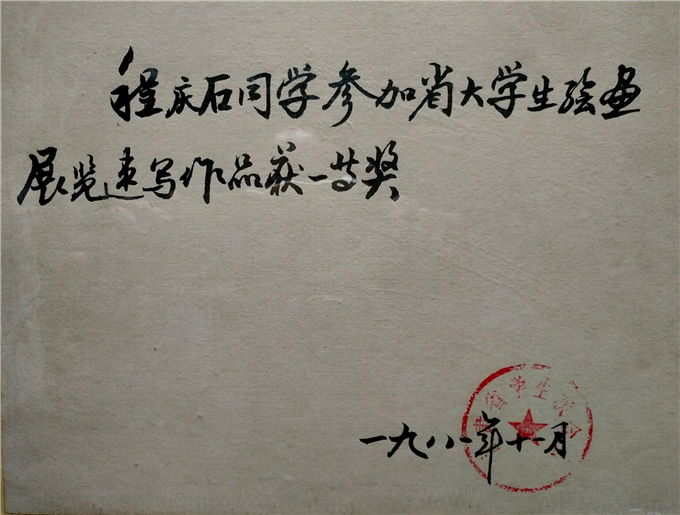 程庆石同学参加省大学生绘画
展览速写作品获一等奖
一九八一年十一月
省学生联合会